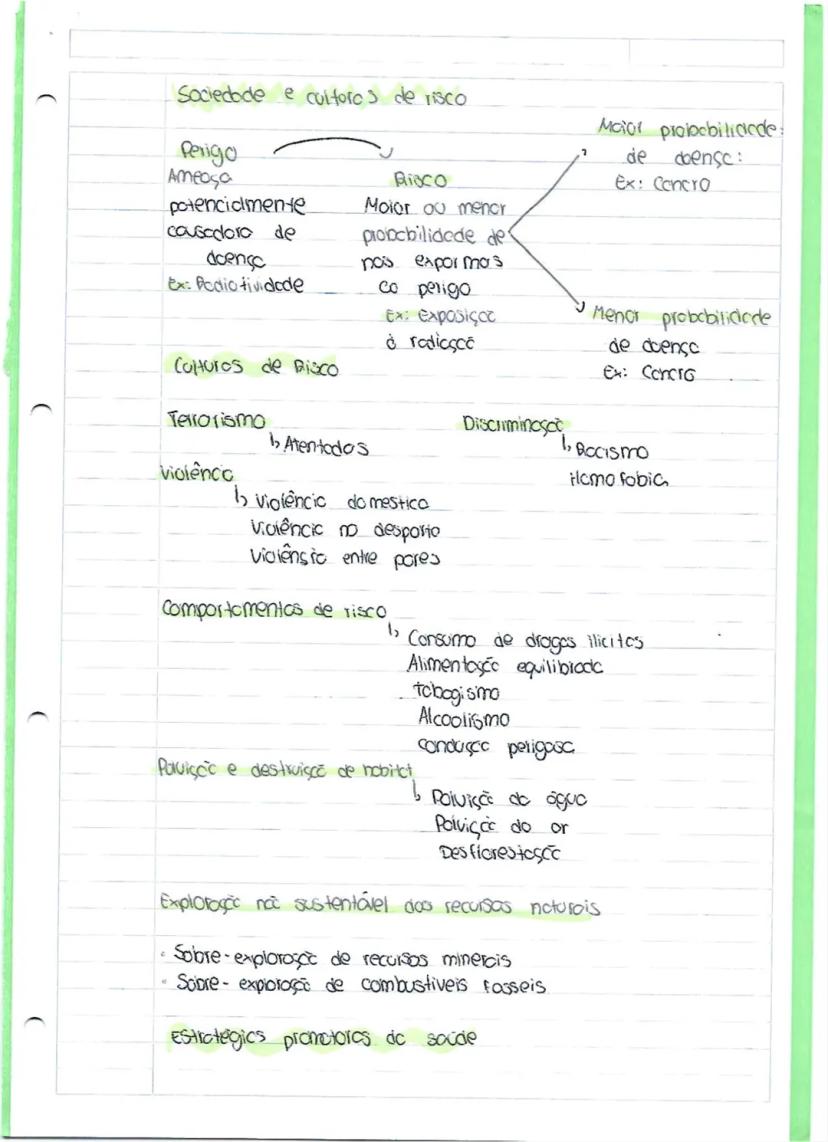 Sociedade e culturas de risco
Perigo
Ameaça
potencialmente
causadora de
doença
Ex: Radiotividade
Risco
Maior ou menor
probabilidade de
nos expormos
ao perigo
Ex: Exposição
à radiação
Maior probabilidade:
de doença:
Ex: Cancro
Menor probabilidade
de doença
Ex: Cancro
Culturas de Risco
Terrorismo
↳ Atentados
Discriminação
↳ Racismo
Homofobia
Violência
↳ Violência domestica
Violência no desporto
Violênsia entre pares
Comportamentos de risco
↳ Consumo de drogas ilicitas
Alimentação equilibrada
tabagismo
Alcoolismo
condução perigosa
Poluição e destruição de habitat
↳ Poluição da água
Poluição do ar
Desflorestação
Exploração não sustentável dos recursos naturais
• Sobre-exploração de recursos minerais
• Sobre-exploração de combustiveis fosseis
Estratégias promotoras da saúde